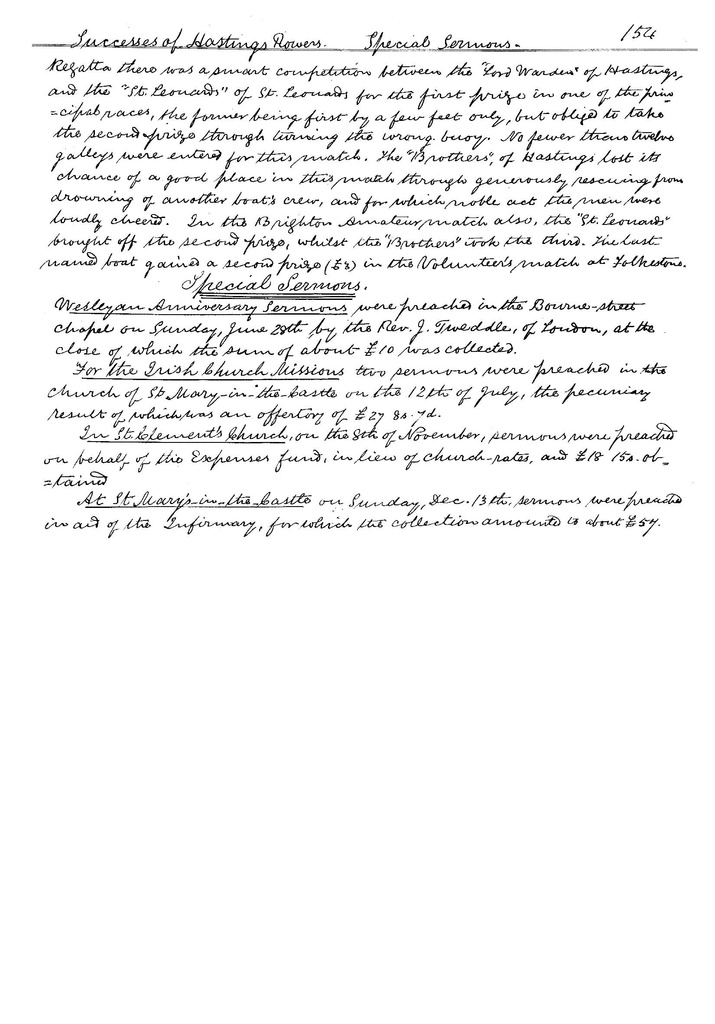 Successes of Hastings Rowers. Special Sermons. 154
Regatta there was a smart competition between the "Lord Warden" of Hastings,
and the "St. Leonards" of St. Leonards for the first prize in one of the prin
=cipal races, the former being first by a few feet only, but obliged to take
the second prize through turning the wrong buoy. No fewer than twelve
galleys were entered for this match. The "Brothers", of Hastings lost its
chance of a good place in this match through generously rescuing from
drowning of another boat's crew, and for which noble act the men were
loudly cheered. In the Brighton Amateur match also, the "St. Leonards"
brought off the second prize, whilst the "Brothers" took the third. The last
named boat gained a second prize (£3) in the Volunteers match at Folkestone.
Special Sermons.
Wesleyan Anniversary Sermons were preached in the Bourne-street
chapel on Sunday, June 28th by the Rev. J. Tweddle, of London, at the
close of which the sum of about £10 was collected.
For the Irish Church Missions two sermons were preached in the
church of St Mary-in-the-Castle on the 12th of July, the pecuniary
result of which was an offertory of £27 8s. 7d.
In St. Clement's Church, on the 8th of November, sermons were preached
on behalf of the Expenses fund, in lieu of church-rates, and £18 15s. ob=
=tained
At St Mary's-in-the-Castle on Sunday, Dec. 13th, sermons were preached
in aid of the Infirmary, for which the collection amounted to about £57.